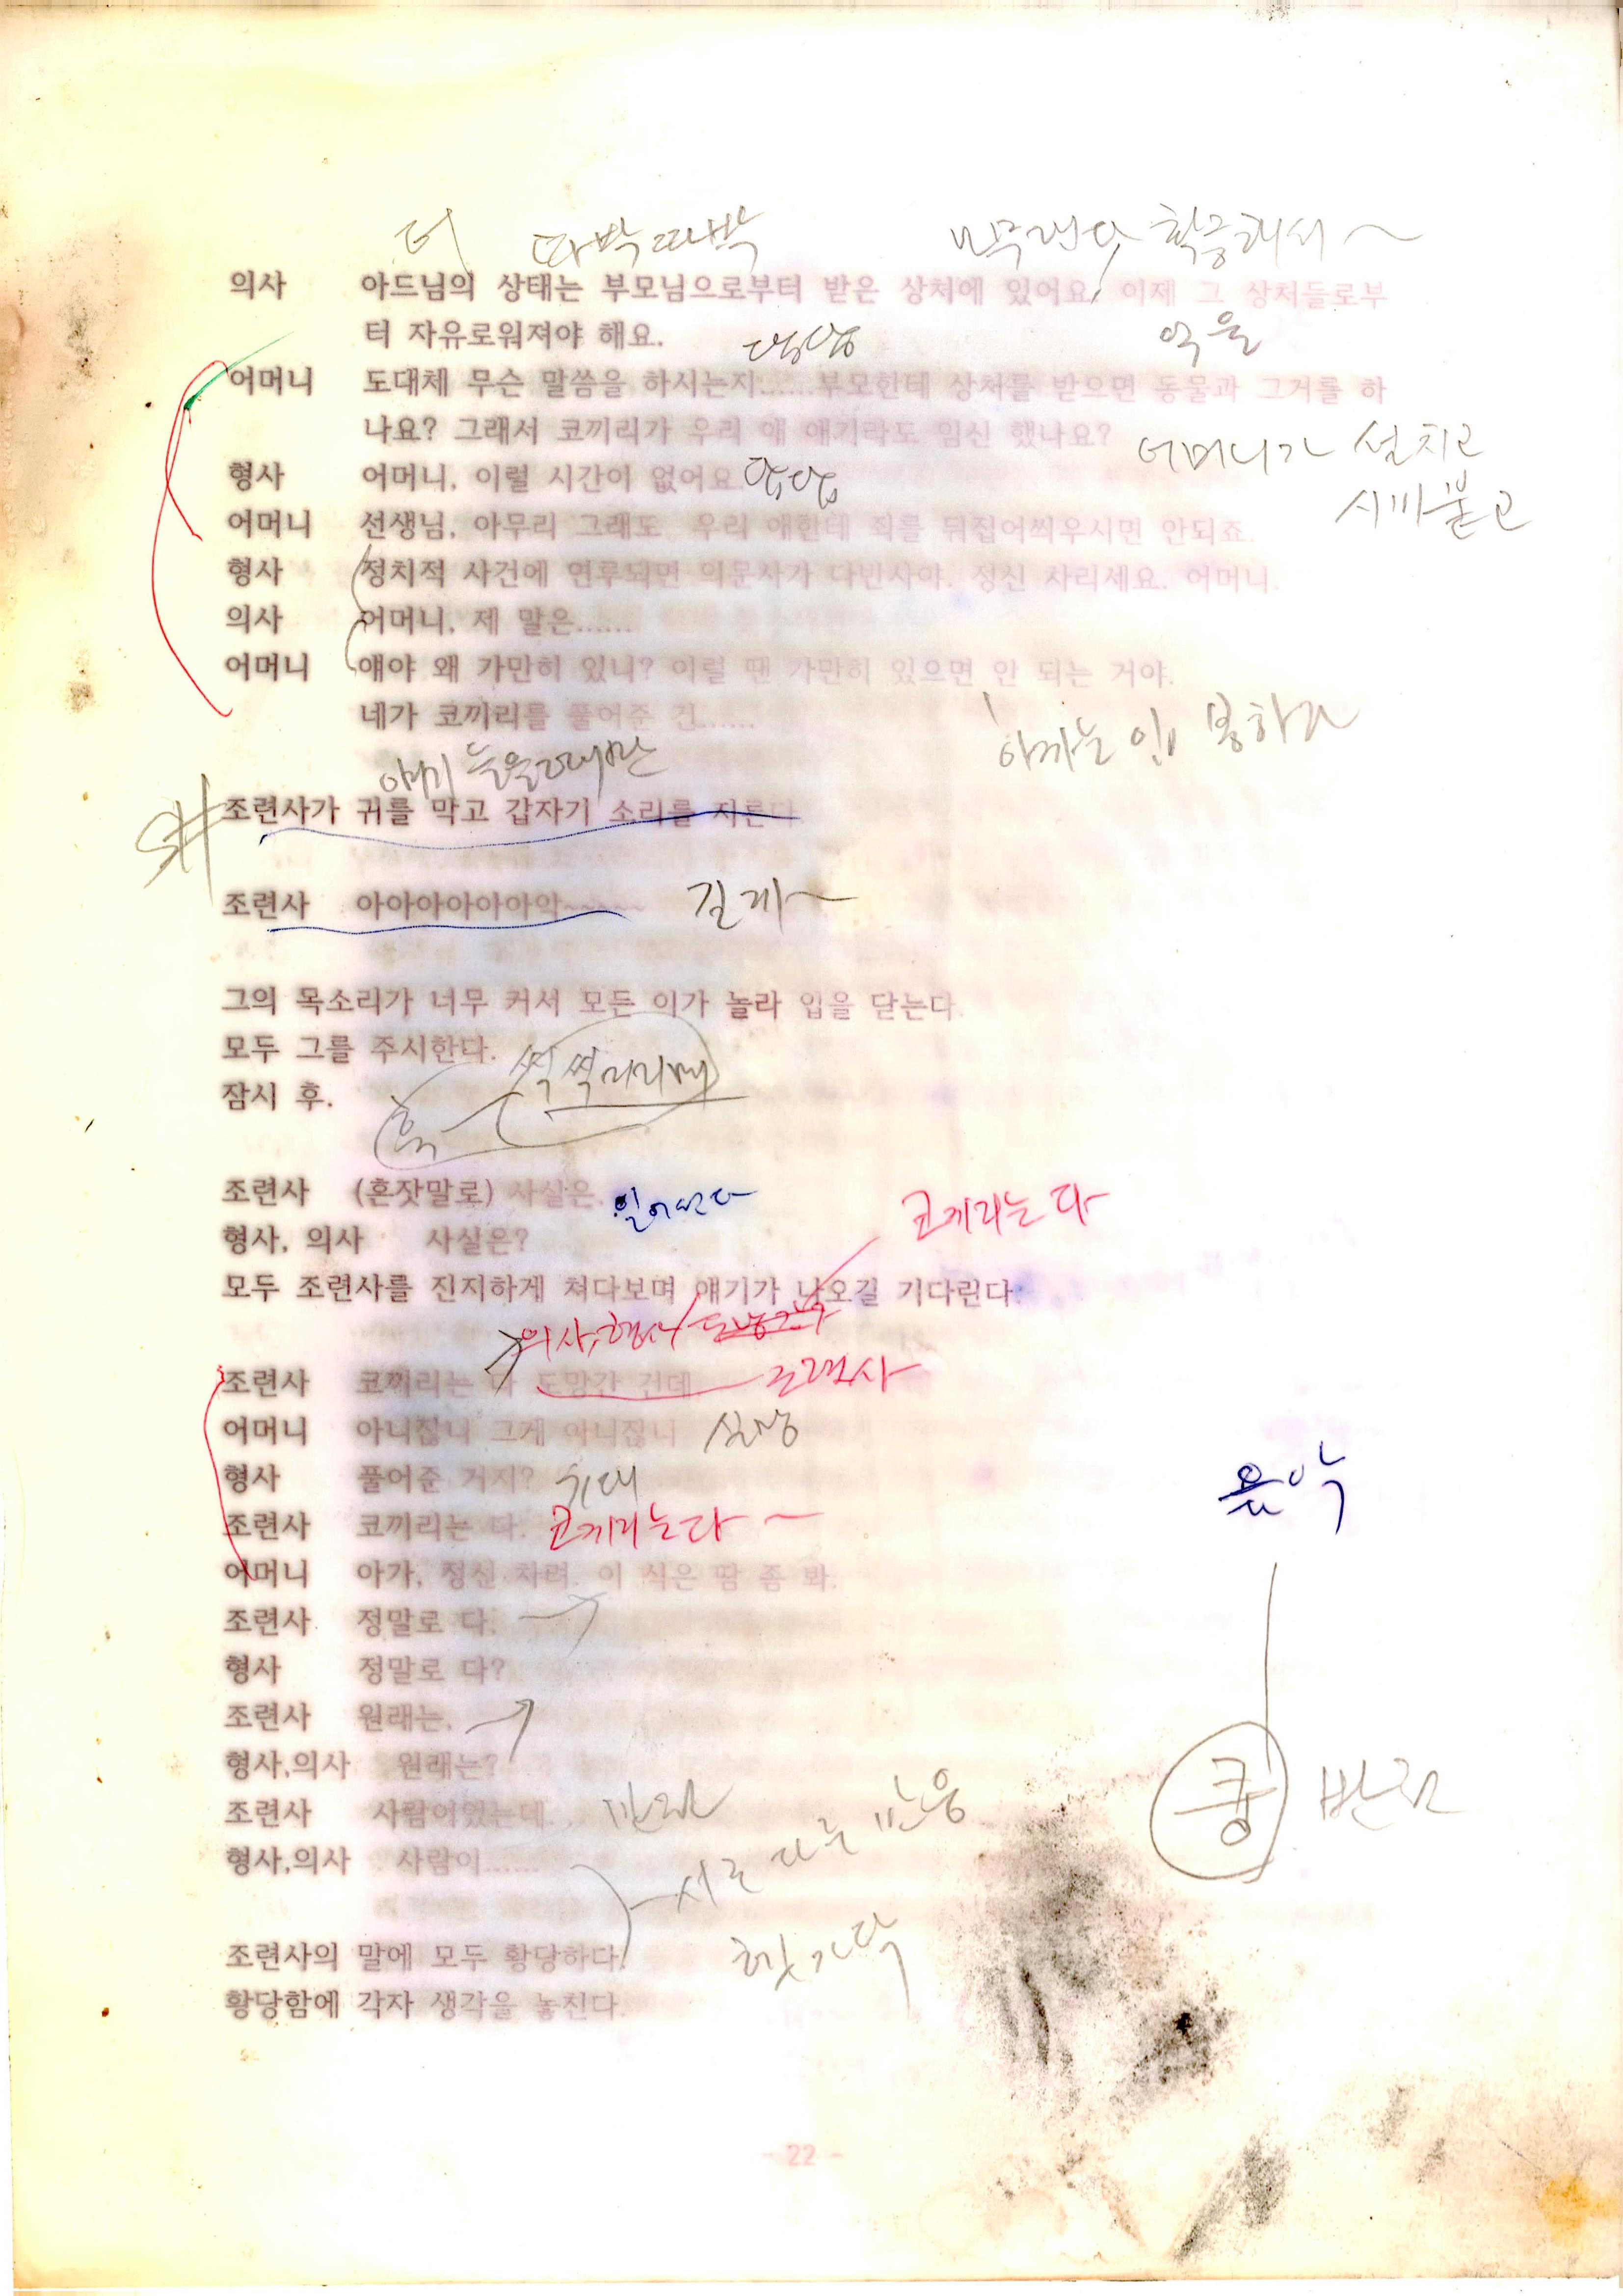 더 따박따박
의사 아드님의 상태는 부모님으로부터 받은 상처에 있어요. 이제 그 상처들로부
터 자유로워져야 해요.
억울
어머니 도대체 무슨 말씀을 하시는지......부모한테 상처를 받으면 동물과 그거를 하
나요? 그래서 코끼리가 우리 애 애기라도 임신 했나요?
어머니가 설치고
형사 어머니, 이럴 시간이 없어요. 답답
시비 붙고
어머니 선생님, 아무리 그래도, 우리 애한테 죄를 뒤집어씌우시면 안되죠.
형사 정치적 사건에 연루되면 의문사가 다반사야. 정신 차리세요. 어머니.
의사 어머니, 제 말은......
어머니 얘야 왜 가만히 있니? 이럴 땐 가만히 있으면 안 되는 거야.
네가 코끼리를 풀어준 건......
아까는 입 봉하라
조련사가 귀를 막고 갑자기 소리를 지른다
조련사 아아아아아아아악~~~~~ 길게~
그의 목소리가 너무 커서 모든 이가 놀라 입을 닫는다.
모두 그를 주시한다.
잠시 후.
조련사 (혼잣말로) 사실은.
코끼리는 다
형사, 의사 사실은?
모두 조련사를 진지하게 쳐다보며 얘기가 나오길 기다린다.
의사, 형사
조련사 코끼리는 다 도망간 건데 조련사
어머니 아니잖니 그게 아니잖니 실망
형사 풀어준 거지? 기대
음악
조련사 코끼리는 다. 코끼리는 다 ~
어머니 아가, 정신 차려. 이 식은 땀 좀 봐.
조련사 정말로 다.
형사 정말로 다?
조련사 원래는.
형사,의사 원래는?
쿵 반전
조련사 사람이었는데. 반전
형사,의사 사람이......
서로 다른 반응
조련사의 말에 모두 황당하다.
헷가닥
황당함에 각자 생각을 놓친다.
- 22 -